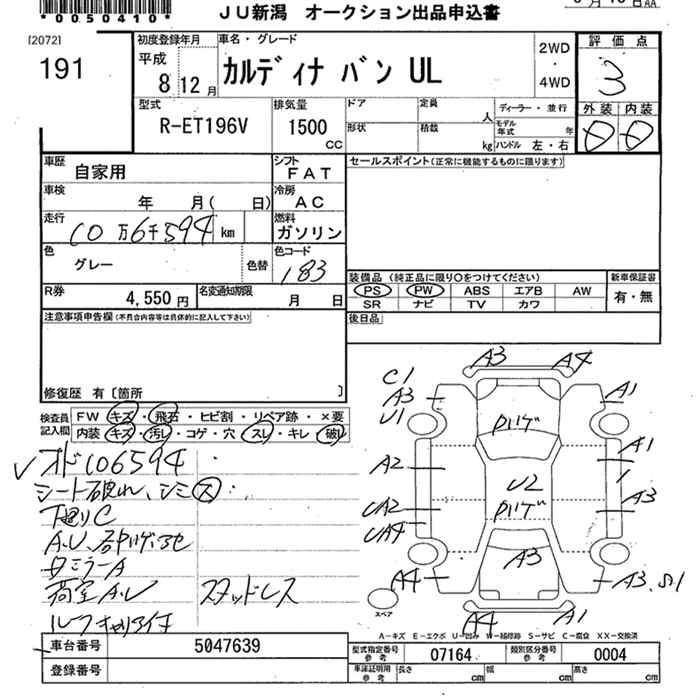 *0050410*
JU新潟 オークション出品申込書
[2072]
191
初度登録年月
平成
8 12 月
車名・グレード
カルディナ バン UL
2WD
・
4WD
評価点
3
外装 内装
型式
R-ET196V
排気量
1500
CC
ドア
定員
人
形状
積載
kg
ディーラー・並行
モデル年式 年
ハンドル 左・右
車歴
自家用
シフト
FAT
セールスポイント(正常に機能するものに限ります)
車検
年 月( 日)
冷房
AC
走行
10 万 6千594 km
燃料
ガソリン
色
グレー
色替
色コード
183
装備品 (純正品に限り〇をつけてください)
PS PW ABS エアB AW
SR ナビ TV カワ
新車保証書
有・無
R券
4,550 円
名変通知期限
月 日
後日品
注意事項申告欄 (不具合内容等は具体的に記入して下さい)
修復歴 有〔箇所 〕
検査員記入欄
FW キズ・飛石・ヒビ割・リペア跡・×要
内装 キズ・汚レ・コゲ・穴・スレ・キレ・破レ
✓オド106594
シート破れ、シミ ス
下廻りC
A.U
A
荷室A.U
スタッドレス
ルーフキャリア付
A3 A4
C1
A3
U1
A1
A2
A1
U2
UA2
UA4
A3
A3
A4
A3 S1
A4
A1
スペア
A－キズ E－エクボ U－凹み W－補修跡 S－サビ C－腐食 XX－交換済
車台番号
5047639
登録番号
型式指定番号
参考
07164
類別区分番号
参考
0004
車庫証明用
参考
長さ cm 幅 cm 高さ cm